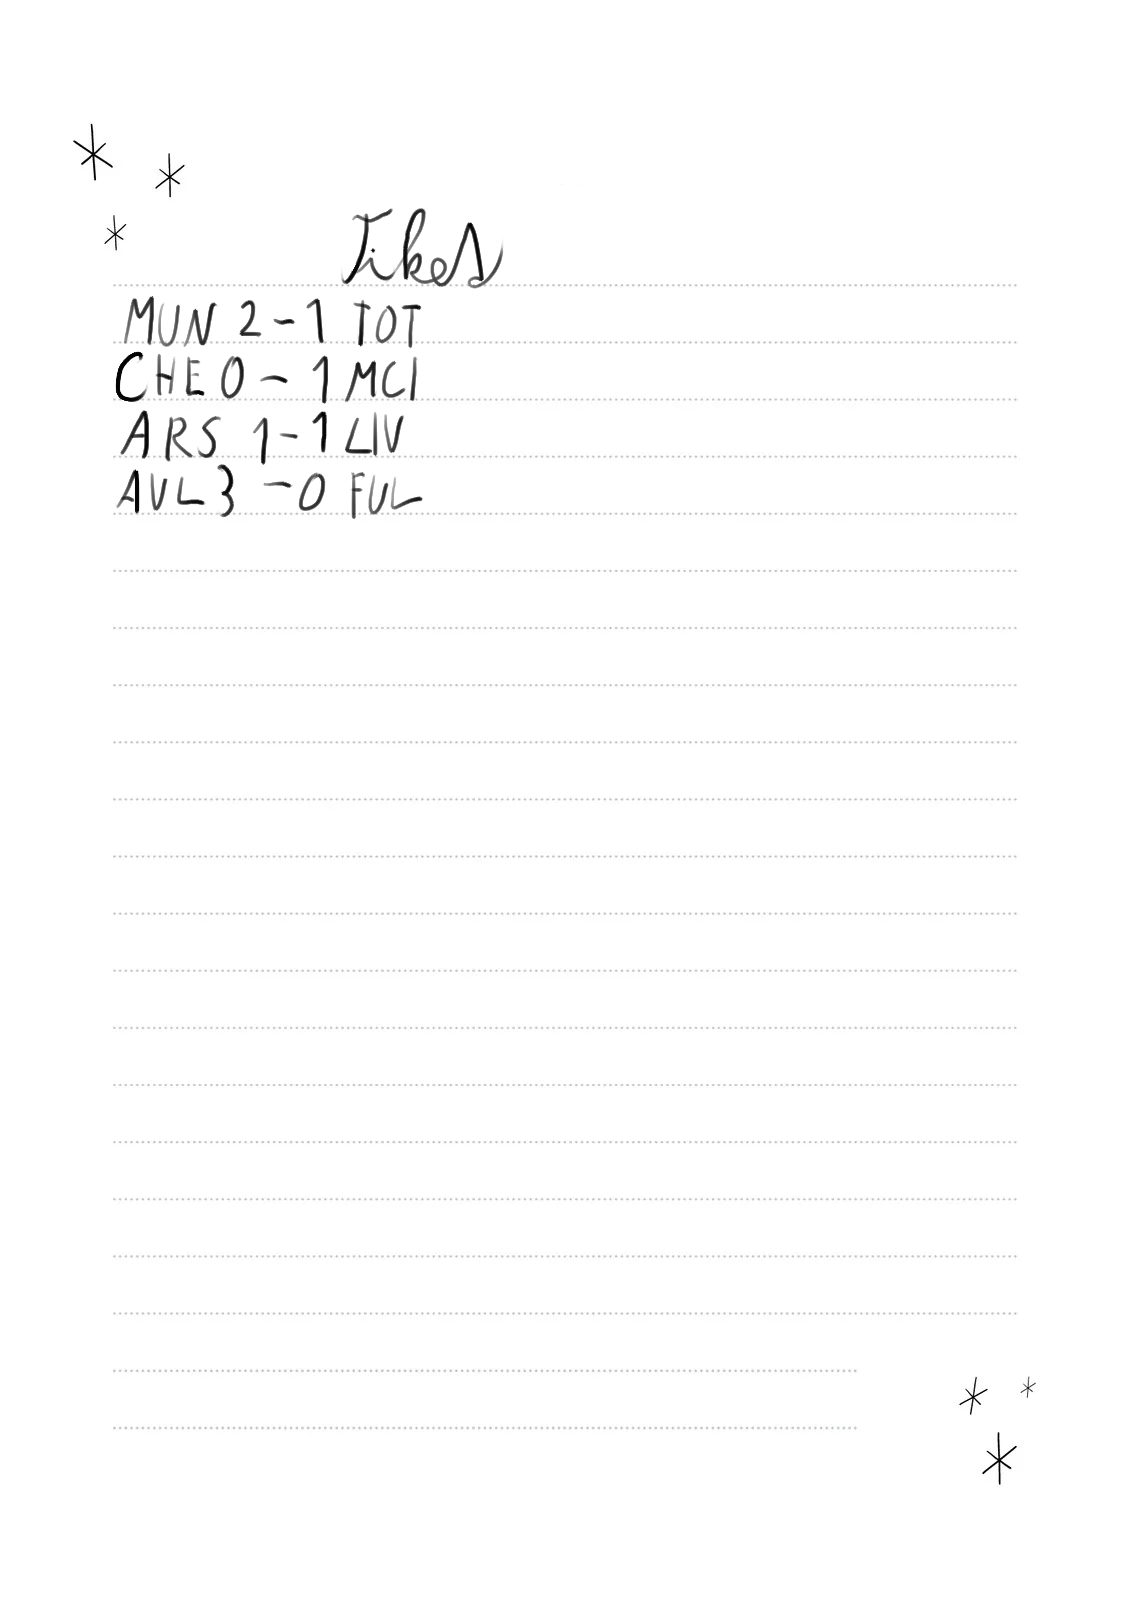 Jikes
MUN 2-1 TOT
CHE 0-1 MCI
ARS 1-1 LIV
AVL 3-0 FUL